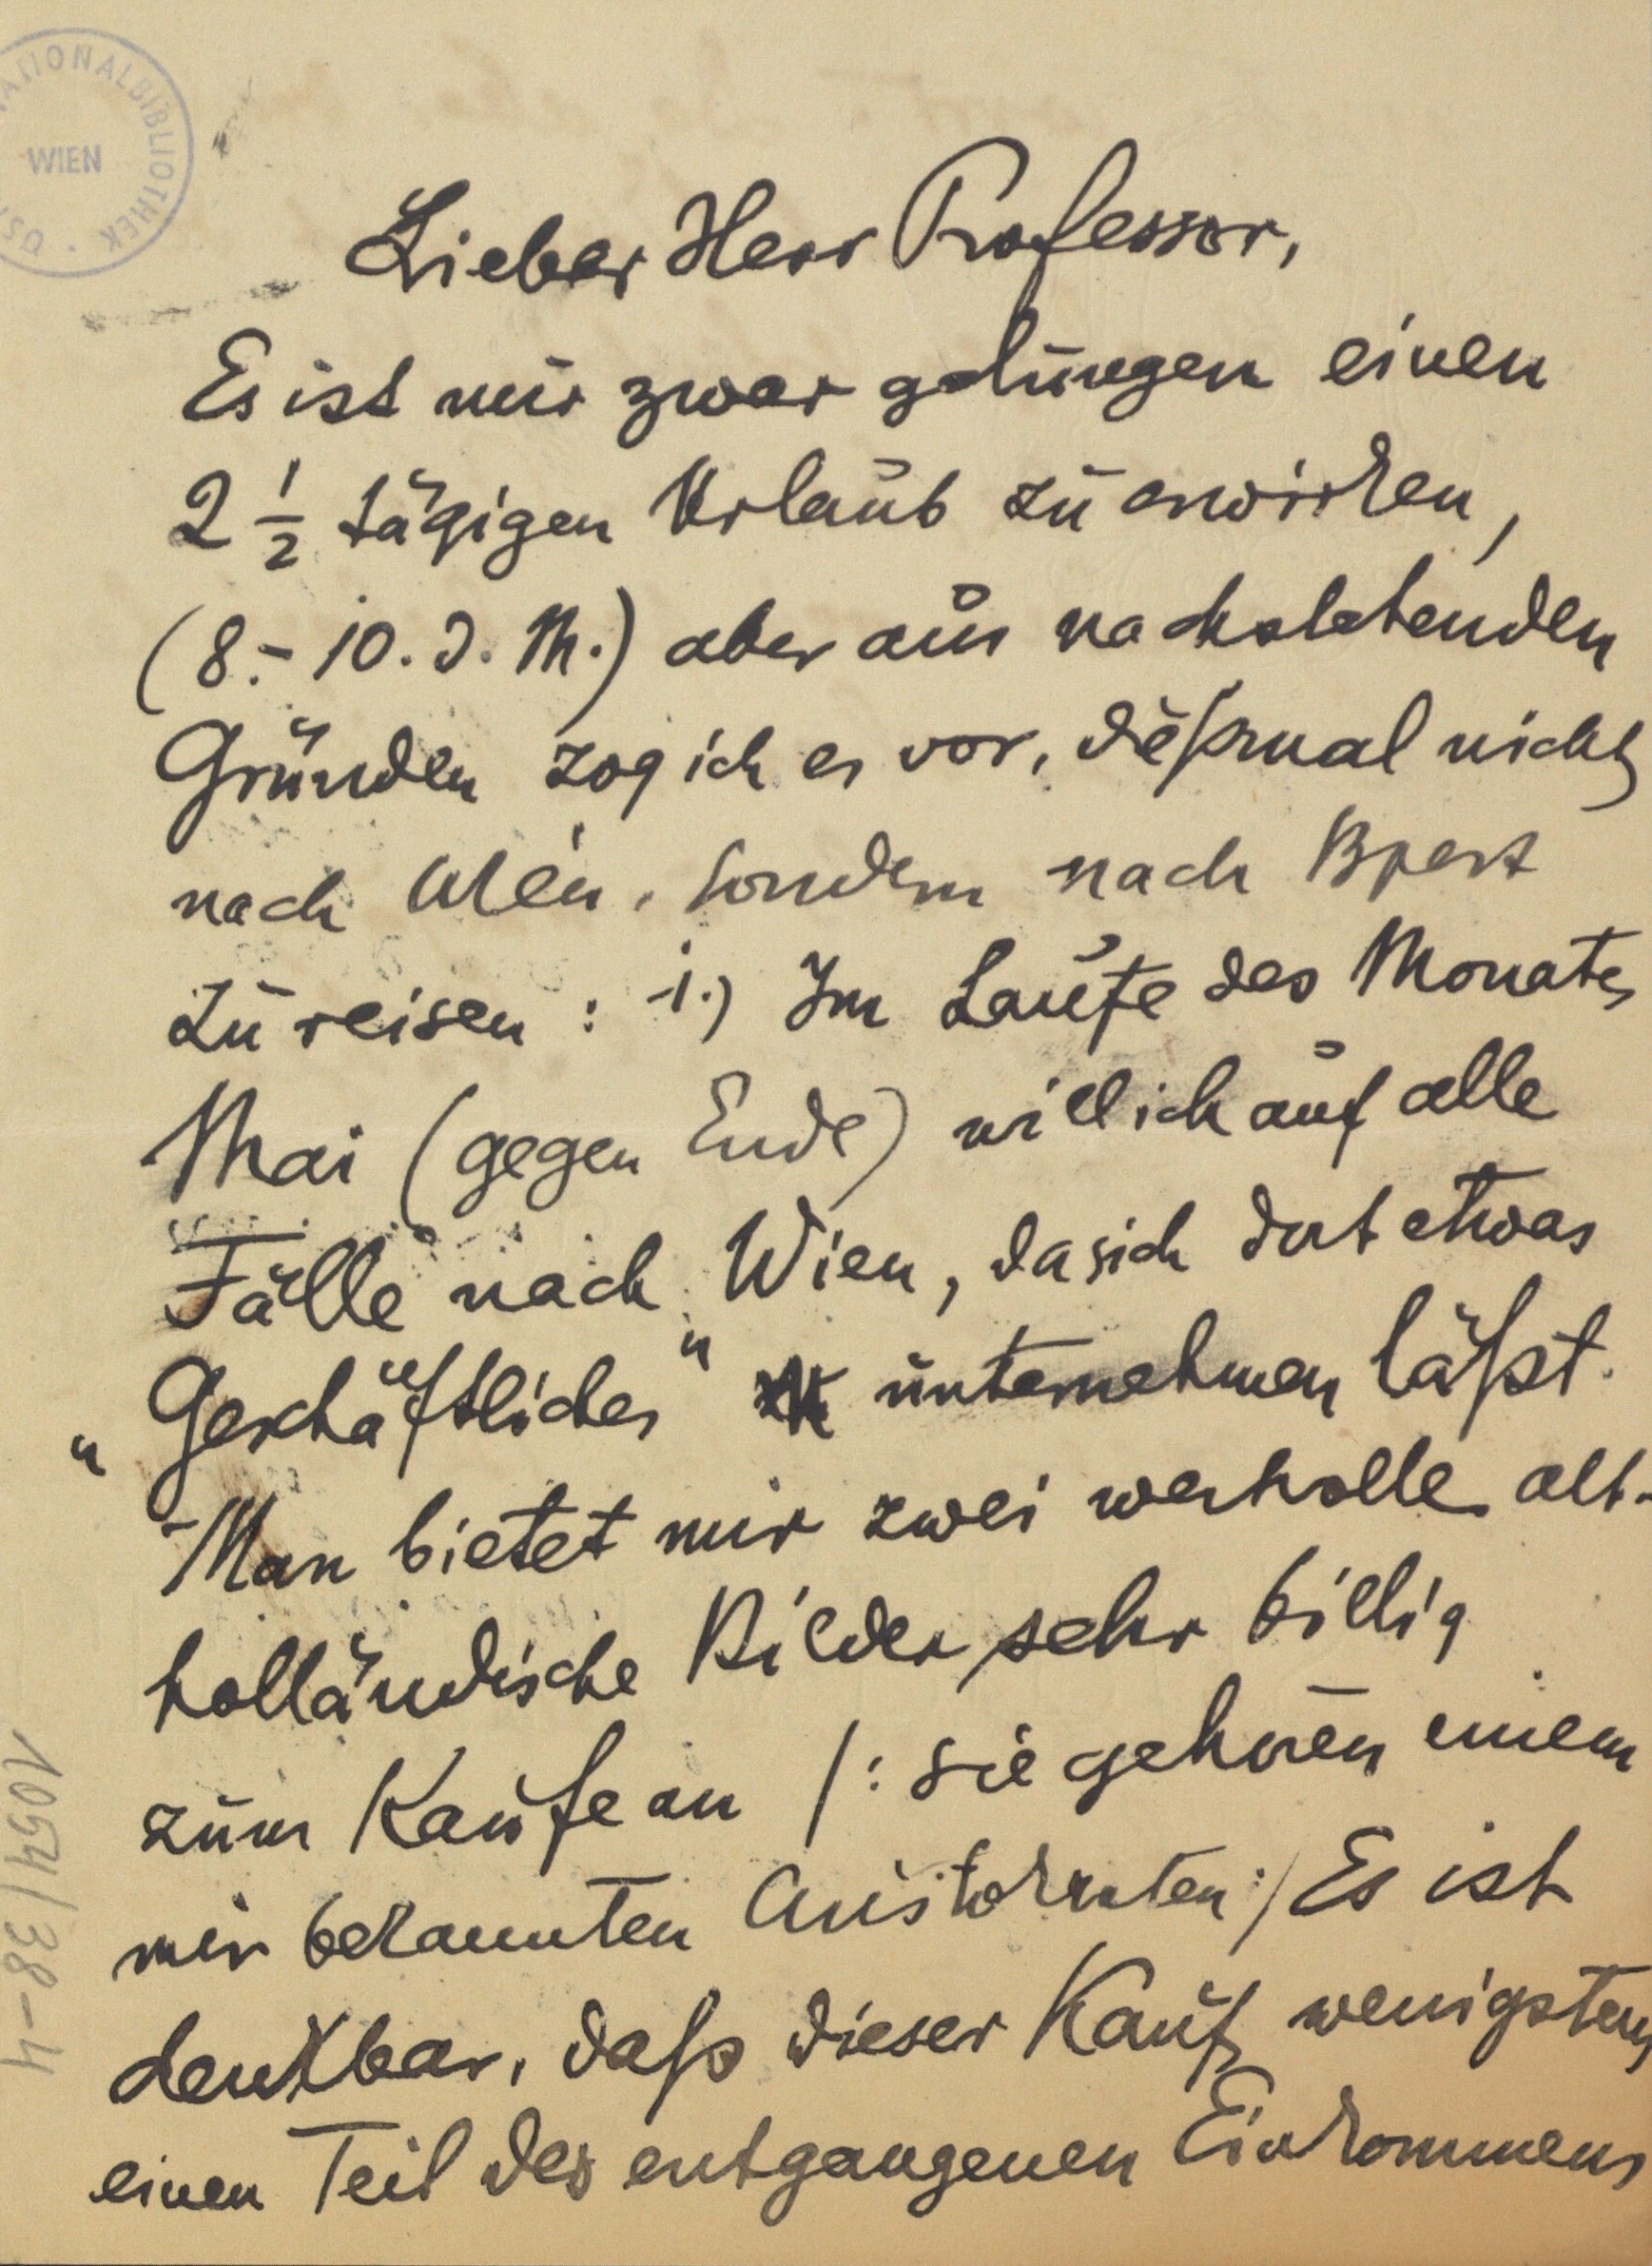 NATIONALBIBLIOTHEK
WIEN
Lieber Herr Professor,
Es ist mir zwar gelungen einen
2 1/2 tägigen Urlaub zu erwirken,
(8.- 10. d. M.) aber aus nachstehenden
Gründen zog ich es vor, dießmal nicht
nach Wien, sondern nach Bpest
zu reisen : 1.) Im Laufe des Monates
Mai (gegen Ende) will ich auf alle
Fälle nach Wien, da sich dort etwas
„Geschäftliches" unternehmen läßt.
Man bietet mir zwei wertvolle alt-
holländische Bilder sehr billig
zum Kaufe an /: sie gehören einem
mir bekannten Aristokraten :/ Es ist
denkbar, daß dieser Kauf wenigstens
einen Teil des entgangenen Einkommens
1054/38-4